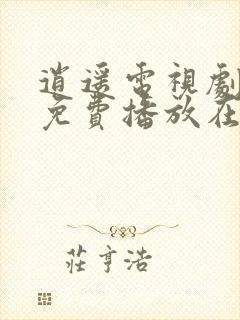 逍遥電視劇
免費播放在
莊亨浩